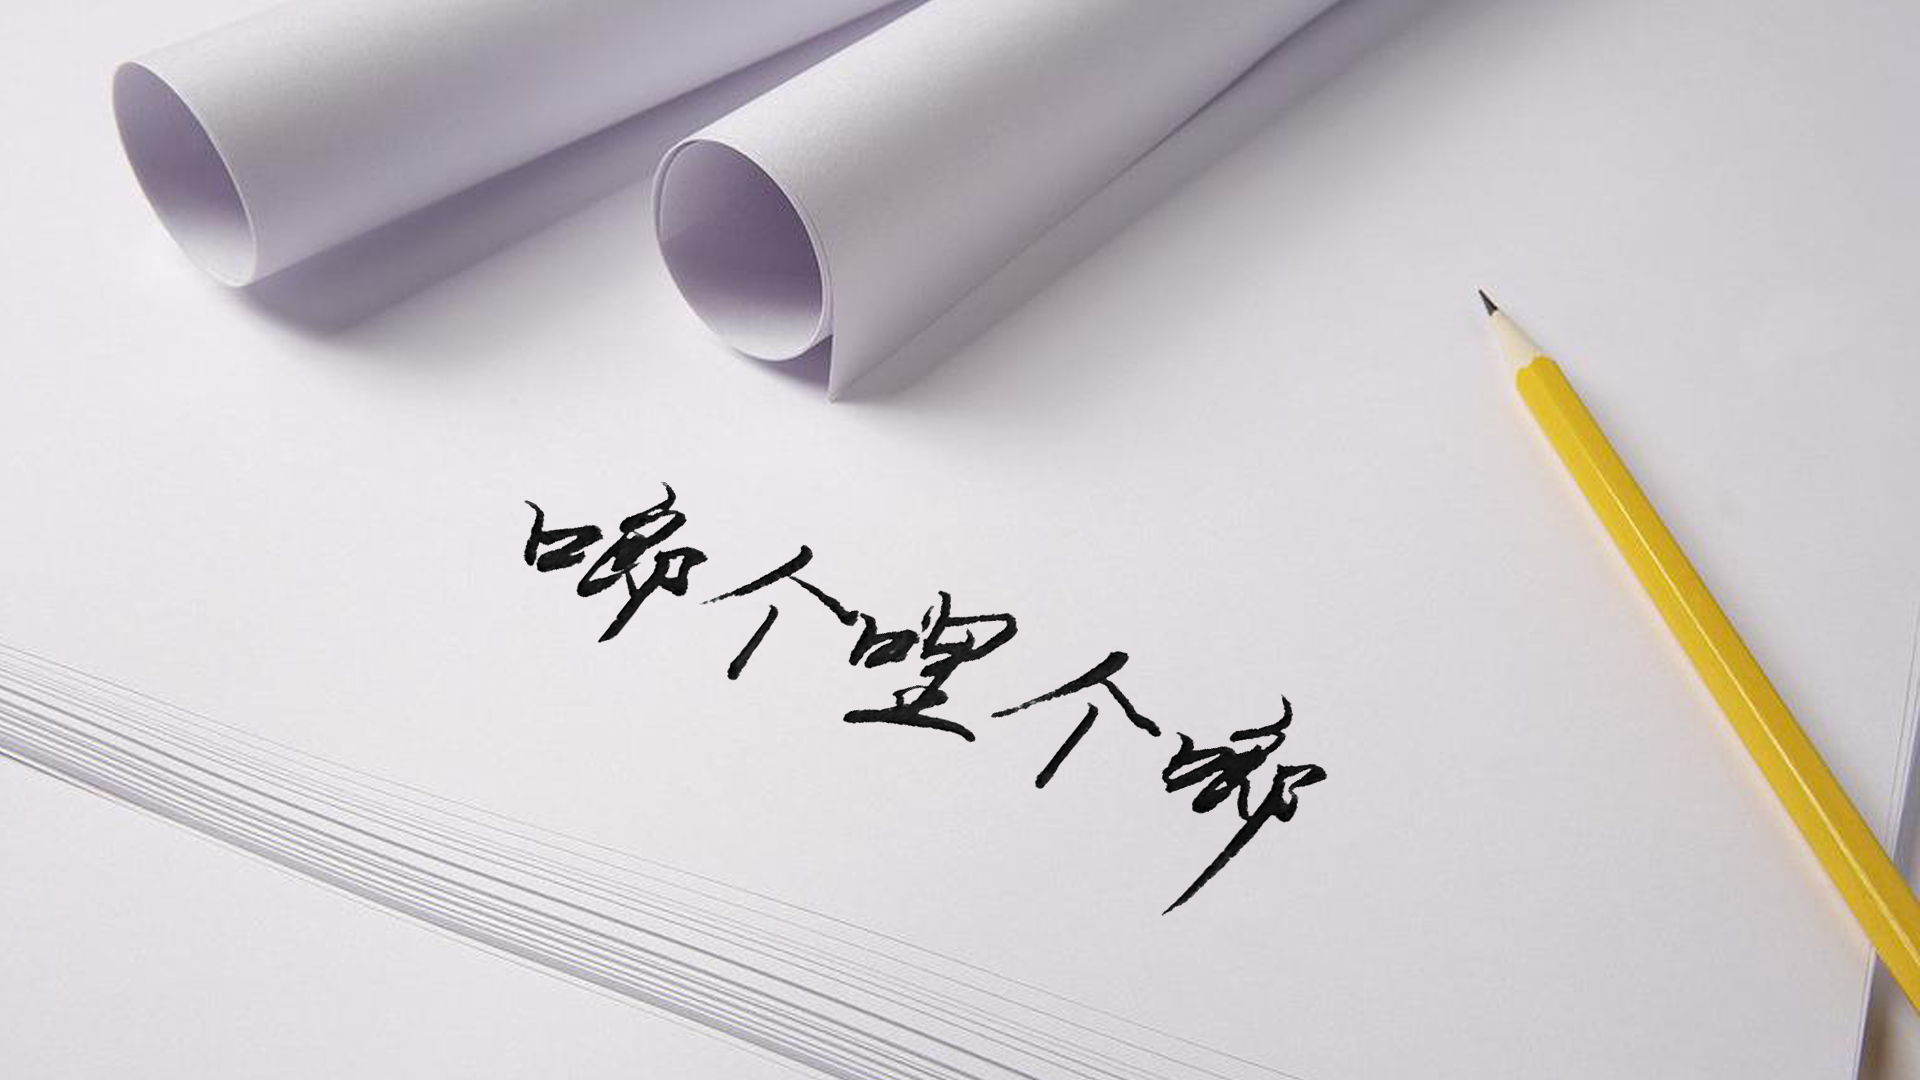 啷个哩个啷